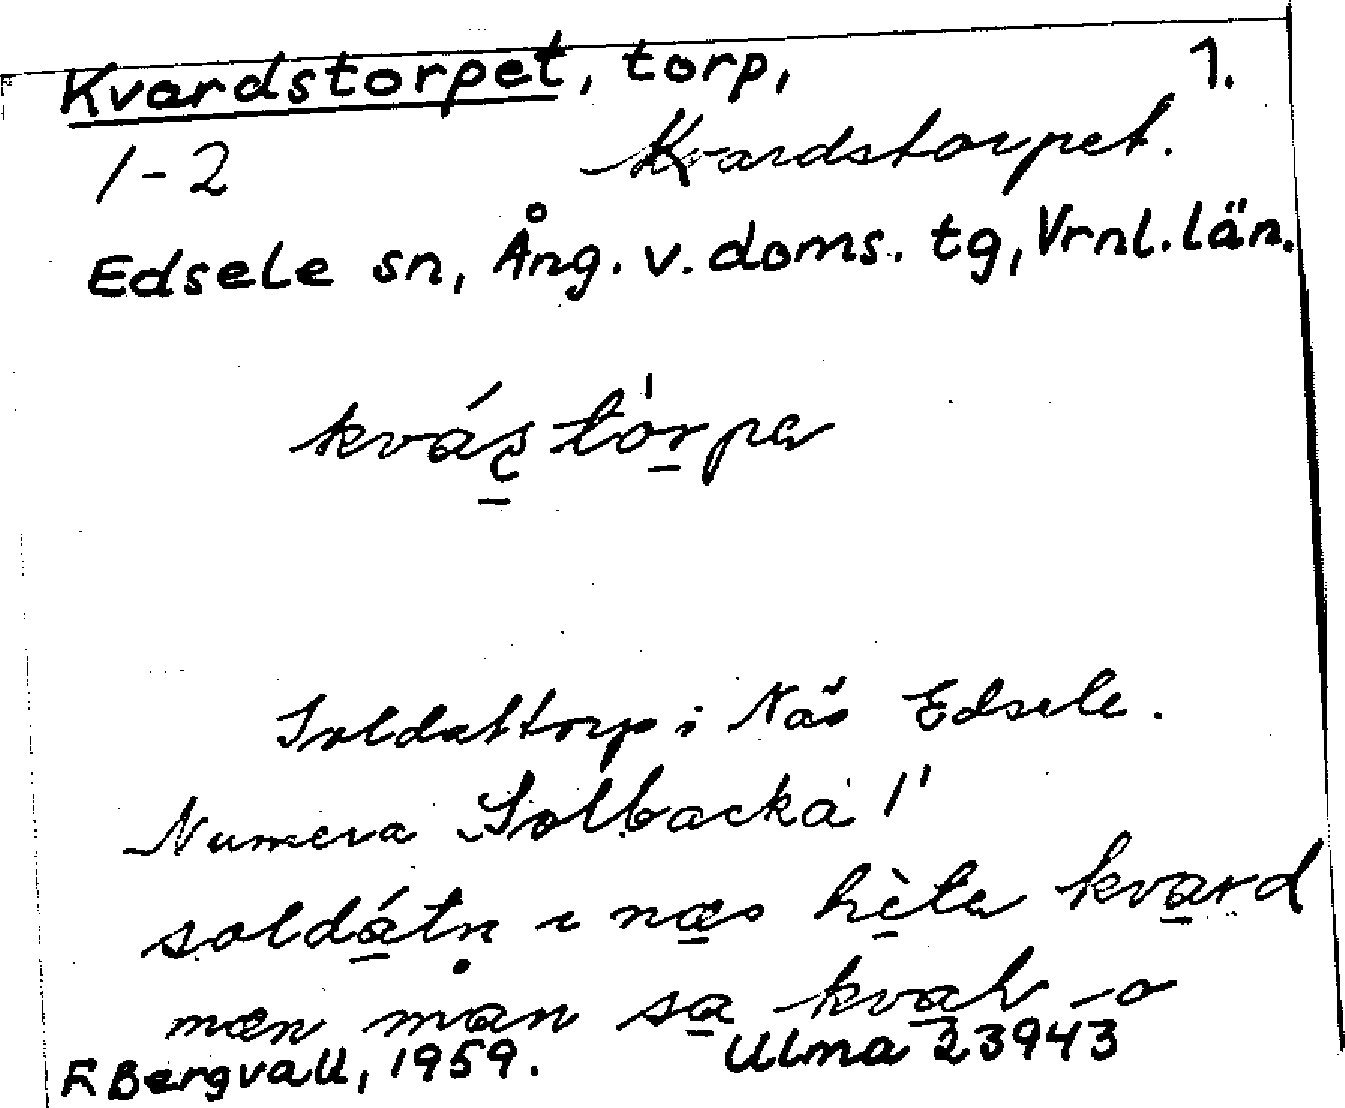 Kvardstorpet, torp, 1.
1-2 Kvardstorpet.
Edsele sn, Ång. v. doms. tg, Vrnl. län.
kváʂtórpa
Soldattorp i Näs Edsele.
Numera Solbacka 1'
soldátn i næs hète kvard
mæn man sa
F. Bergvall, 1959. Ulma 23943